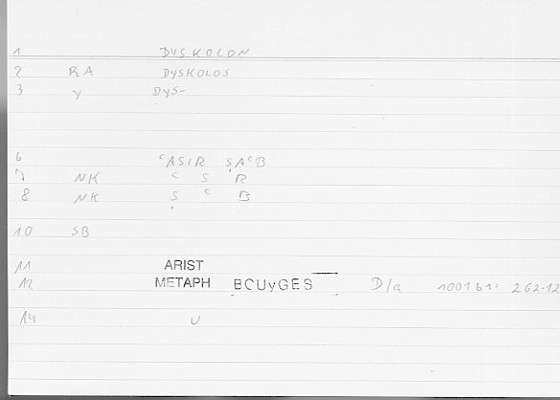 1 DYSKOLON
2 RA DYSKOLOS
3 y DYS-
6 ᶜASIR ṢAᶜB
7 NK ᶜ S R
8 NK Ṣ ᶜ B
10 SB
11 ARIST
12 METAPH BOUyGES D/a 1001b1= 262.12
14 U